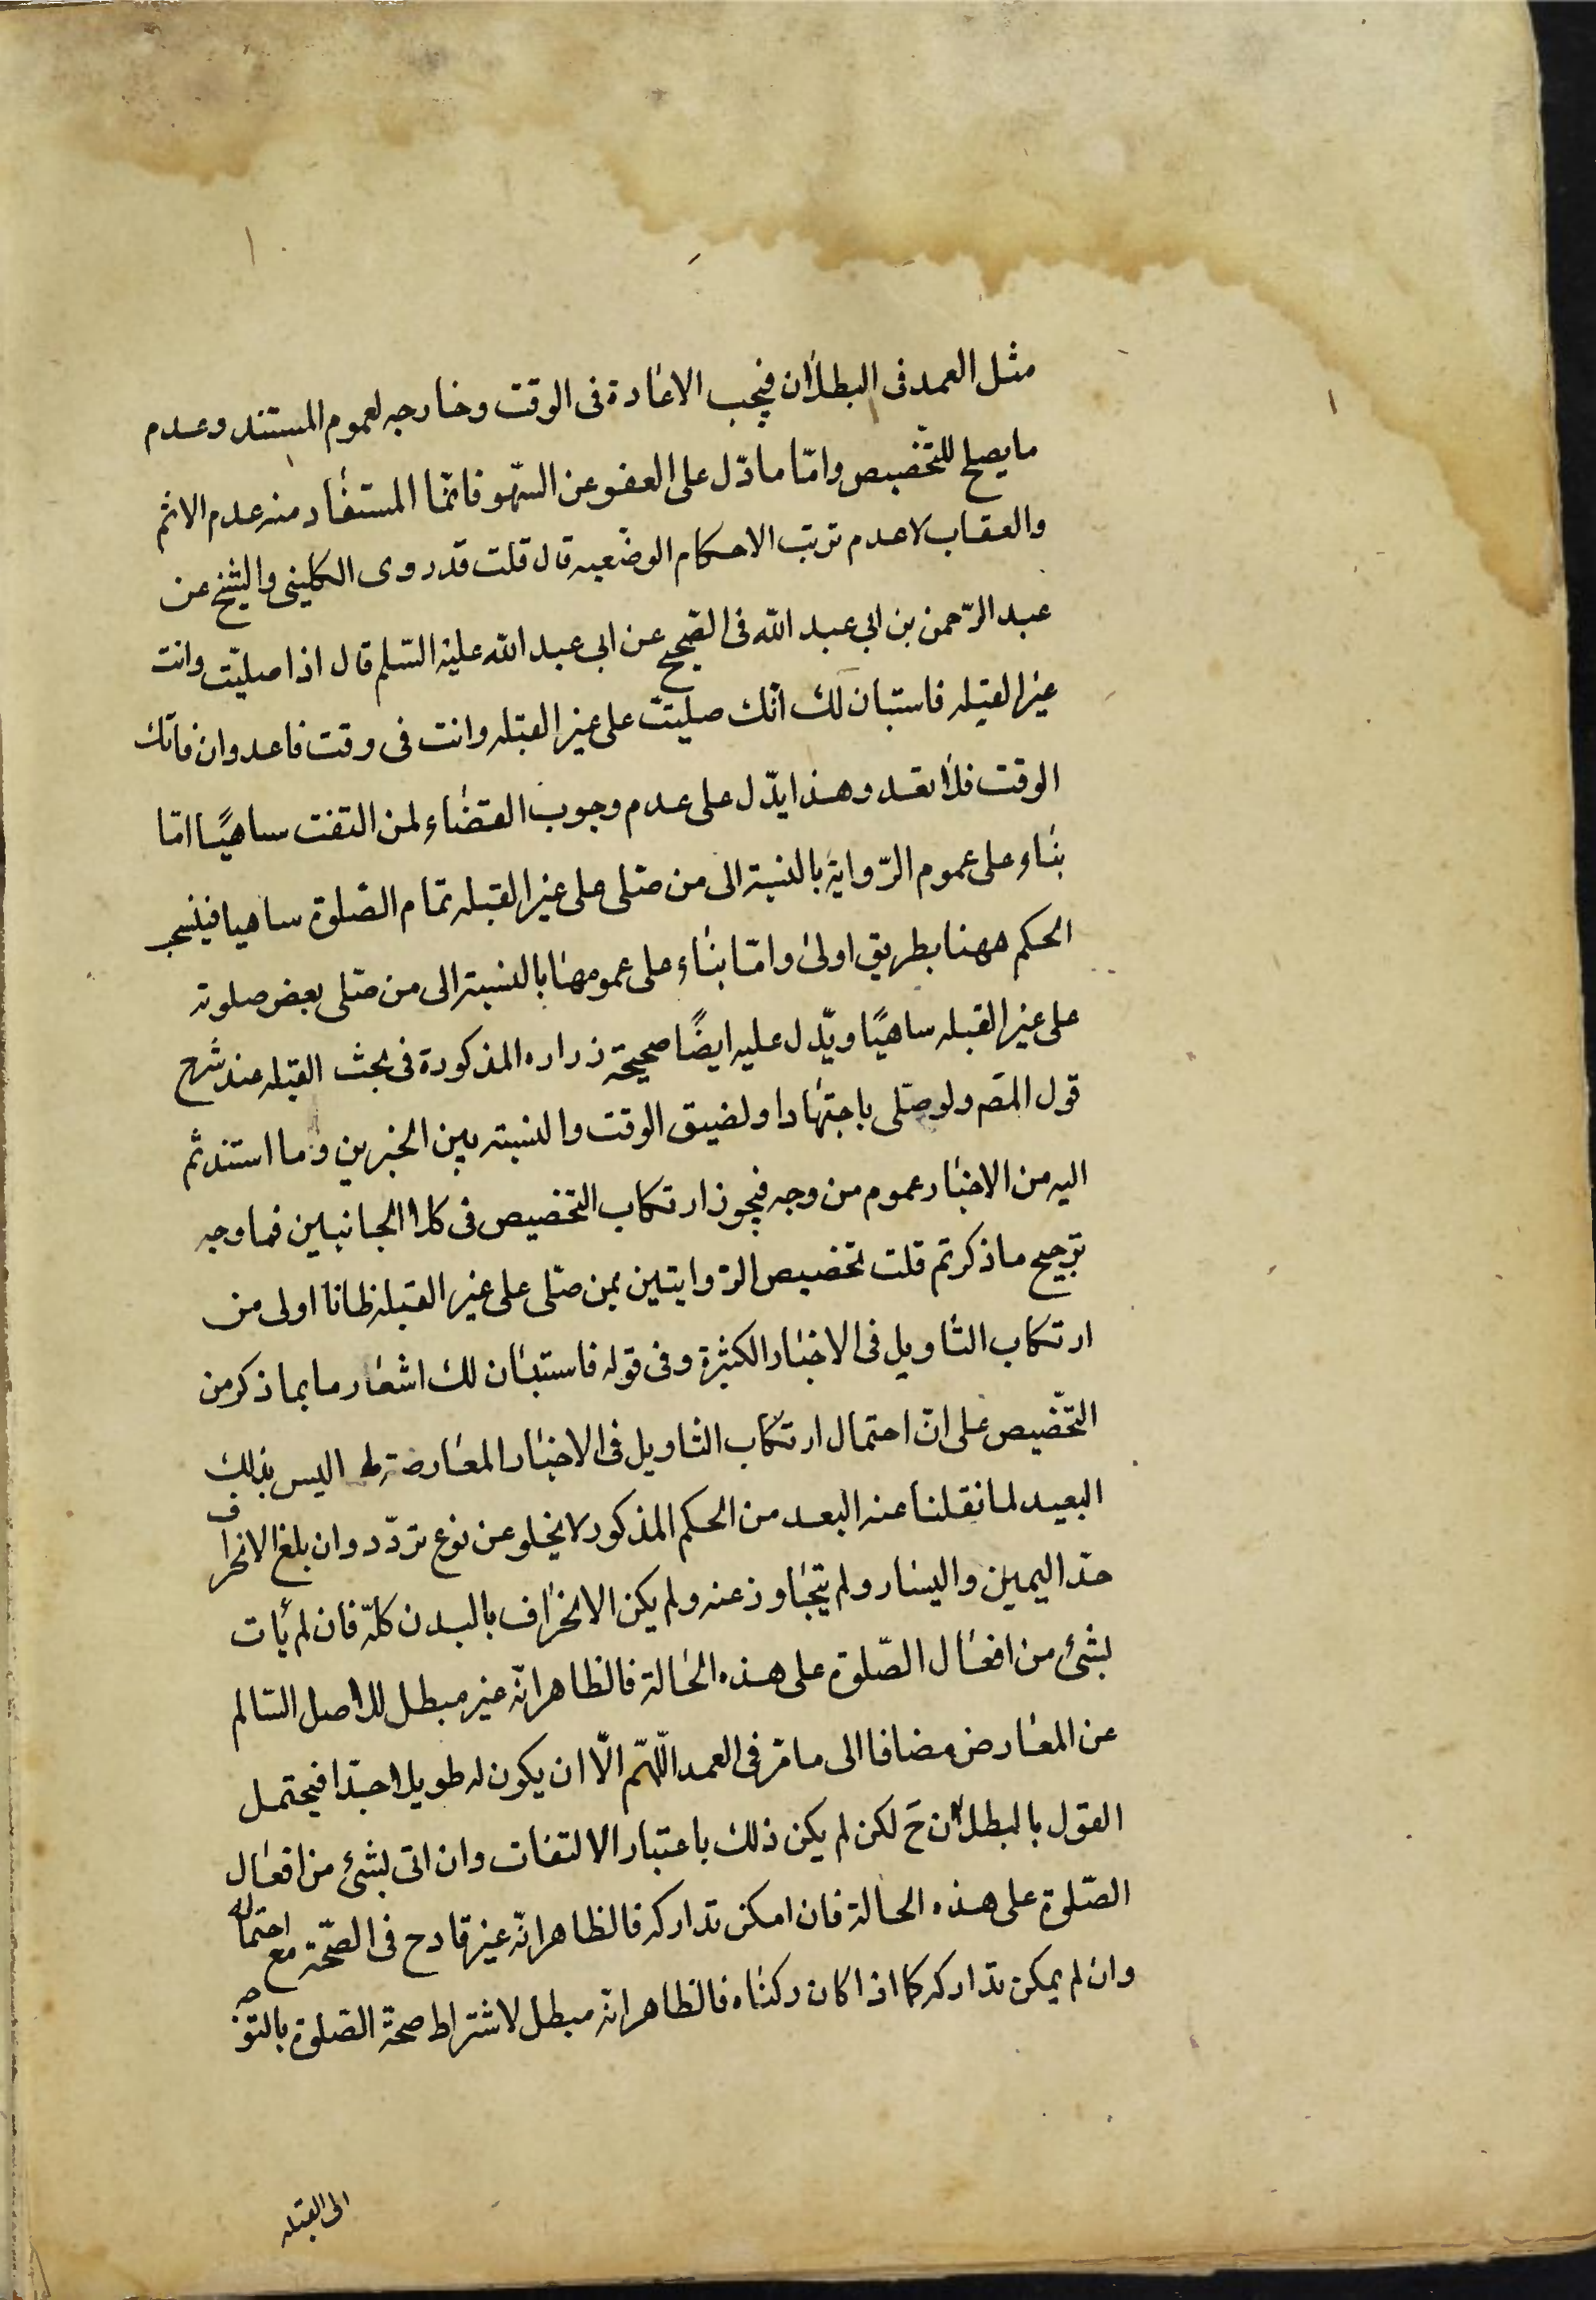 مثل العمد فى البطلان فيجب الاعادة فى الوقت وخارجه لعموم المستند وعدم
ما يصلح للتخصيص وامّا ما دّل على العفو عن السّهو فانّما المستفاد منه عدم الاثم
والعقاب لا عدم ترتب الاحكام الوضعيه قال قلت قد روى الكلينى والشيخ عن
عبد الرّحمن بن ابي عبد الله فى الصّحيح عن ابى عبد الله عليه السّلم قال اذا صليّت وانت
غير القبله فاستبان لك انّك صليت على غير القبله وانت فى وقت فاعد وان فاتك
الوقت فلا تعد وهذا يدّل على عدم وجوب القضاء لمن التفت ساهيًا امّا
بناء على عموم الرّواية بالنسبة الى من صلى على غير القبله تمام الصّلوة ساهيا فينسحب
الحكم ههنا بطريق اولى وامّا بناء على عمومها بالنسبة الى من صلى بعض صلوته
على غير القبله ساهيًا ويدّل عليه ايضًا صحيحة زراره المذكورة فى بحث القبله عند شرح
قول المصَ ولو صلّى باجتهاد او لضيق الوقت والنسبته بين الخبرين وما استند ثم
اليه من الاخبار عموم من وجه فيجوز ارتكاب التخصيص فى كلا الجانبين فما وجه
ترجيح ما ذكرتم قلت تخصيص الرّوايتين بمن صلّى على غير القبله ظانا اولى من
ارتكاب التاويل فى الاخبار الكثيرة وفى قوله فاستبان لك اشعار ما بما ذكر من
التخصيص على انّ احتمال ارتكاب التاويل فى الاخبار المعارضة له اليس بذلك
البعيد لما نقلنا عنه البعد من الحكم المذكور لا يخلو عن نوع تردّد وان بلغ الانحراف
حدّ اليمين واليسار ولم يتجاوز عنه ولم يكن الانحراف بالبدن كلّه فان لم يأت
بشئ من افعال الصّلوة على هذه الحالة فالظاهر انّه غير مبطل للاصل السّالم
عن المعارض مضافا الى ما مرّ فى العمد اللّهمّ الّا ان يكون له طويلا جدّا فيحتمل
القول بالبطلان حَ لكن لم يكن ذلك باعتبار الالتفات وان اتى بشئ من افعال
الصّلوة على هذه الحالة فان امكن تداركه فالظاهر انّه غير قادح فى الصّحّة مع احتماله
وان لم يمكن تداركه كما اذا كان ركناه فالظاهر انّه مبطل لاشتراط صحة الصّلوة بالتوجه
الى القبله